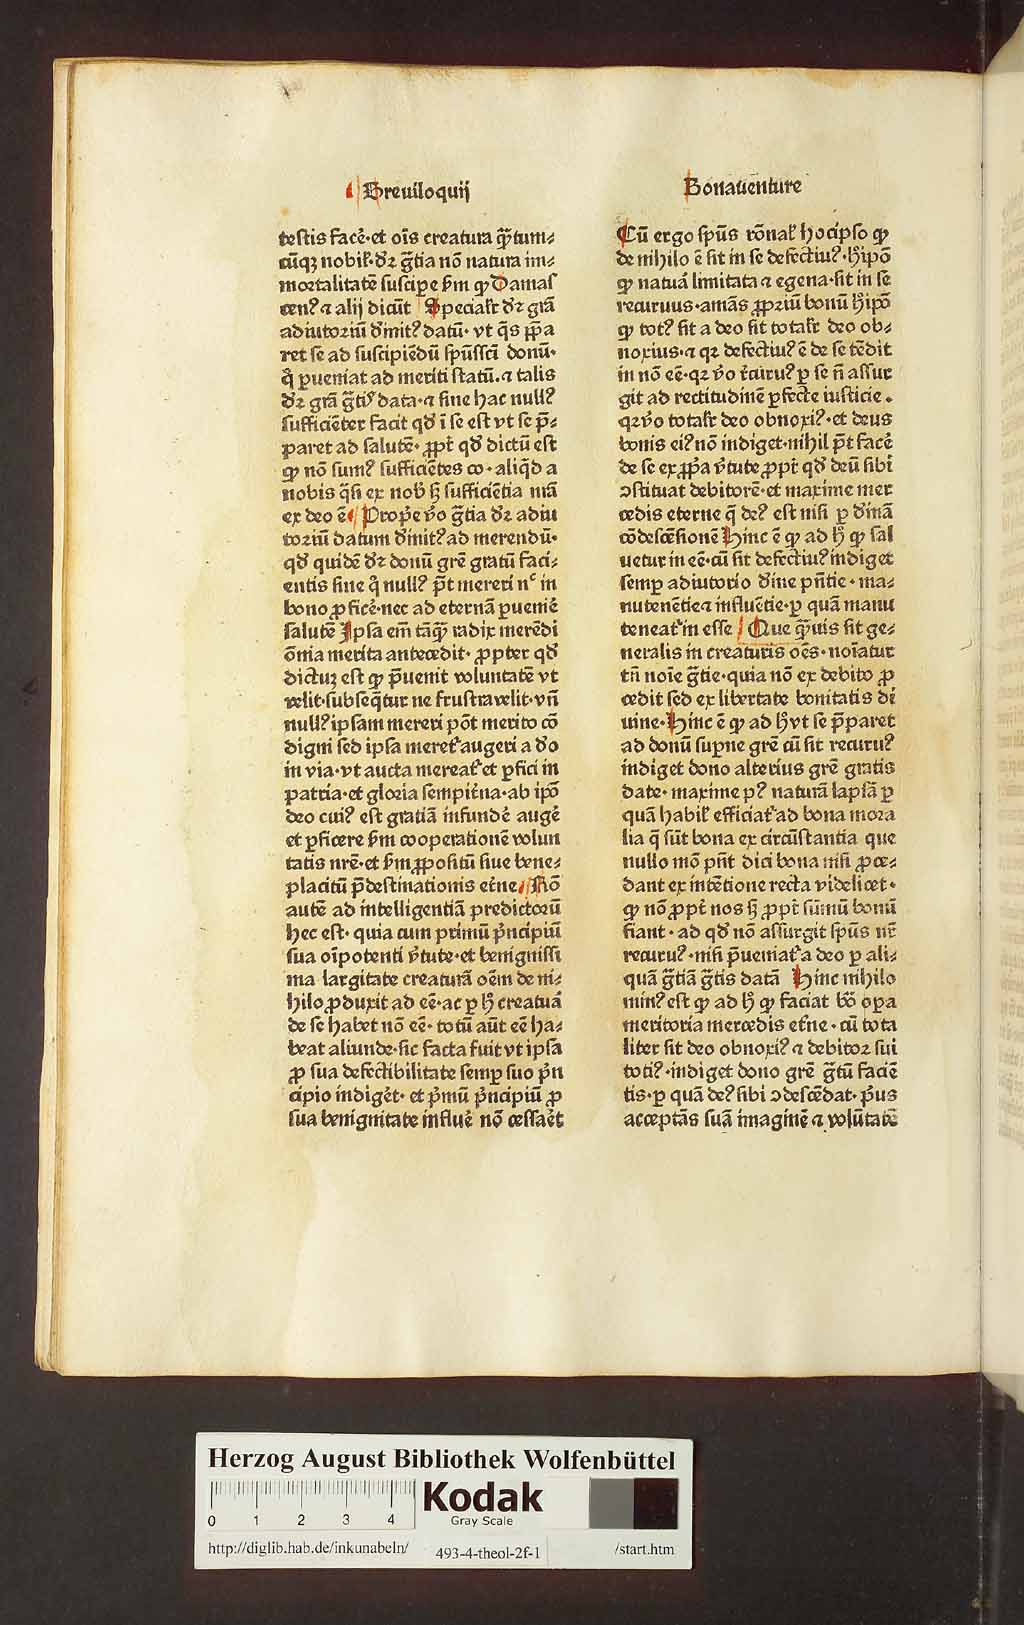 Breuiloquij
Bonauenture
testis facē·et oīs creatura q̄ꝫtum⸗
cūqꝫ nobił·dꝛ gr̄tia nō natura im⸗
moꝛtalitatē suscipe ẜm ꝙ Damas
cenꝰ ⁊ alij dicūt Specialr̄ dꝛ grā
adiutoꝛiū dīnitꝰ datū·vt q̄s p̄pa
ret se ad suscipiēdū spūssc̄i donū·
q̇ ꝑueniat ad meriti statū·⁊ talis
dꝛ grā gr̄tis data·⁊ sine hac nullꝰ
sufficiēter facit qd̄ ī se est vt se p̄⸗
paret ad salutē·ꝓpt̄ qd̄ dictū est
ꝙ nō sumꝰ sufficiētes co·aliqd̄ a
nobis q̄si ex nob̄ sꝫ sufficiētia nr̄a
ex deo ē Prope v̄o gr̄tia dꝛ adiu
toꝛiū datum dīnitꝰ ad merendū·
qd̄ quidē dꝛ donū grē gratū faci⸗
entis sine q̇ nullꝰ p̄t mereri nᶜ in
bono ꝓficē·nec ad eternā ꝑueniē
salutē Ipsa em̄ tāq̄ꝫ radix merēdi
ōnia merita antecedit·ꝓpter qd̄
dictuꝫ est ꝙ p̄uenit voluntatē vt
velit·subseq̄tur ne frustra velit·vn̄
nullꝰ ipsam mereri pōt merito cō
digni sed ipsa meret̄ augeri a d̄o
in via·vt aucta mereat̄ et ꝑfici in
patria·et gloꝛia sempiṫna·ab ipō
deo cuiꝰ est gratiā infundē augē
et ꝑficere ẜm cooperationē volun
tatis nrē·et ẜm ꝓpositū siue bene⸗
placitū p̄destinationis eṫne Rō
autē ad intelligentiā predictoꝛū
hec est·quia cum primū p̄ncipiū
sua oīpotenti v̄tute·et benignissi
ma largitate creaturā oēm de ni⸗
hilo ꝓduxit ad eē·ac ꝑ hꝰ creatua
de se habet nō eē·totū aūt eē ha⸗
beat aliunde·sic facta fuit vt ipsa
ꝓ sua defectibilitate semꝑ suo p̄n
cipio indigēt·et p̄mū p̄ncipiū ꝓ
sua benignitate influē nō cessaēt
Cū ergo spūs rōnał hoc ipso ꝙ
de nihilo ē sit in se defectiuꝰ·hꝰ ipō
ꝙ natuā limitata ⁊ egena·sit in se
recuruus·amās ꝓpriū bonū hꝰ ipō
ꝙ totꝰ sit a deo sit totalr̄ deo ob⸗
noxius·⁊ qꝛ defectiuꝰ ē de se tēdit
in nō eē·qꝛ v̄o r̄curuꝰ ꝑ se n̄ assur
git ad rectitudinē ꝑfecte iusticie·
qꝛ v̄o totalr̄ deo obnoxiꝰ·et deus
bonis eiꝰ nō indiget·nihil p̄t facē
de se ex ꝓpa v̄tute ꝓpt̄ qd̄ deū sibi
ↄstituat debitoꝛē·et maxime mer
cedis eterne q̄ deꝰ est nisi ꝑ dīnā
cōdescēsionē Hinc ē ꝙ ad hꝰ ꝙ sal
uetur in eē·cū sit defectiuꝰ indiget
semꝑ adiutorio dīne p̄ntie·ma⸗
nutenētie ⁊ influētie·ꝑ quā manu
teneat̄ in esse Que q̄ꝫuis sit ge⸗
neralis in creaturis oēs·noīatur
tn̄ noīe gr̄tie·quia nō ex debito ꝓ
cedit sed ex libertate bonitatis di
uine·Hinc ē ꝙ ad hꝰ vt se p̄paret
ad donū superne grē cū sit recuruꝰ
indiget dono alterius grē gratis
date·maxime pꝰ naturā lapsā ꝑ
quā habił efficiat̄ ad bona moꝛa
lia q̄ sūt bona ex circūstantia que
nullo mō pn̄t dici bona nisi ꝓce⸗
dant ex intētione recta videlicet·
ꝙ nō ꝓpt̄ nos sꝫ ꝓpt̄ sūmū bonū
fiant·ad qd̄ nō assurgit spūs nr̄
recuruꝰ·nisi p̄ueniat̄ a deo ꝑ ali⸗
quā gr̄tiā gr̄tis datā Hinc nihilo
minꝰ est ꝙ ad hꝰ ꝙ faciat bō opa
meritoria mercedis eṫne·cū tota
liter sit deo obnoxiꝰ ⁊ debitoꝛ sui
totiꝰ·indiget dono grē gr̄tū faciē
tis·ꝑ quā deꝰ sibi ↄdescēdat·p̄us
acceptās suā imaginē ⁊ volūtatē
Herzog August Bibliothek Wolfenbüttel
0 1 2 3 4
Kodak
Gray Scale
http://diglib.hab.de/inkunabeln/
493-4-theol-2f-1
/start.htm